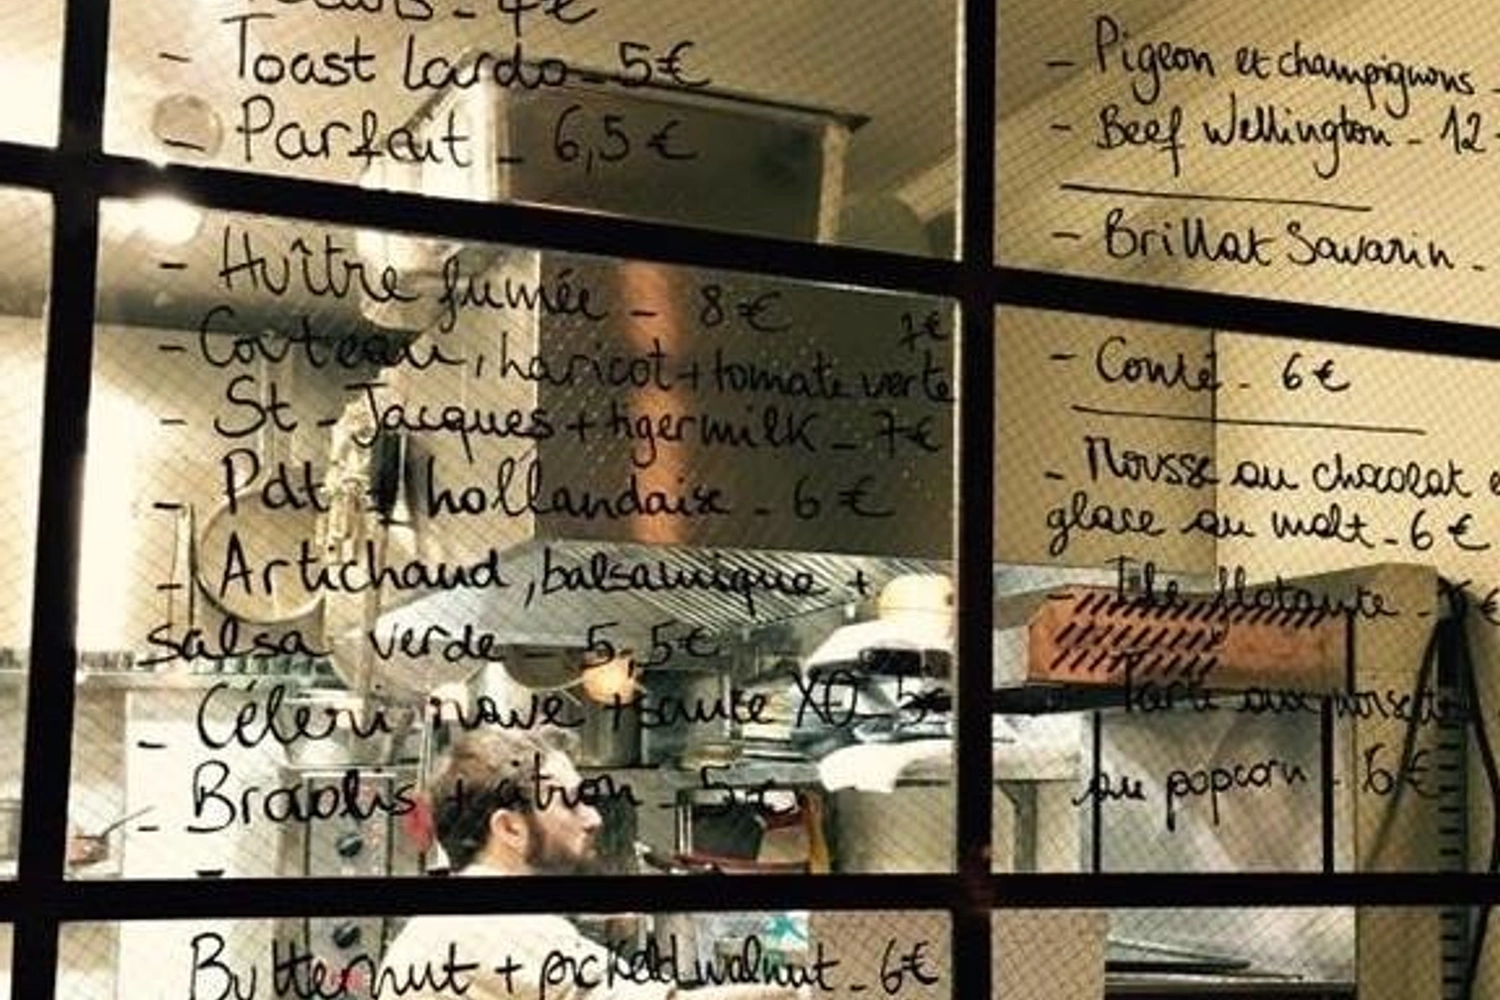 - 4€
- Toast Lardo - 5€
- Parfait - 6,5€
- Huître fumée - 8€
7€
- Couteau, haricot + tomate verte
- St-Jacques + tigermilk - 7€
- Pdt + hollandaise - 6€
- Artichaud, balsamique +
salsa verde - 5,5€
- Céleri rave + sauce XO - 5€
- citron - 5€
Butternut + pickeld walnut - 6€
- Pigeon et champignons -
- Beef Wellington - 12
- Brillat Savarin -
- Comté - 6€
- Mousse au chocolat
glace au malt - 6€
- Ile flotante - €
- Tarte aux
au popcorn - 6€